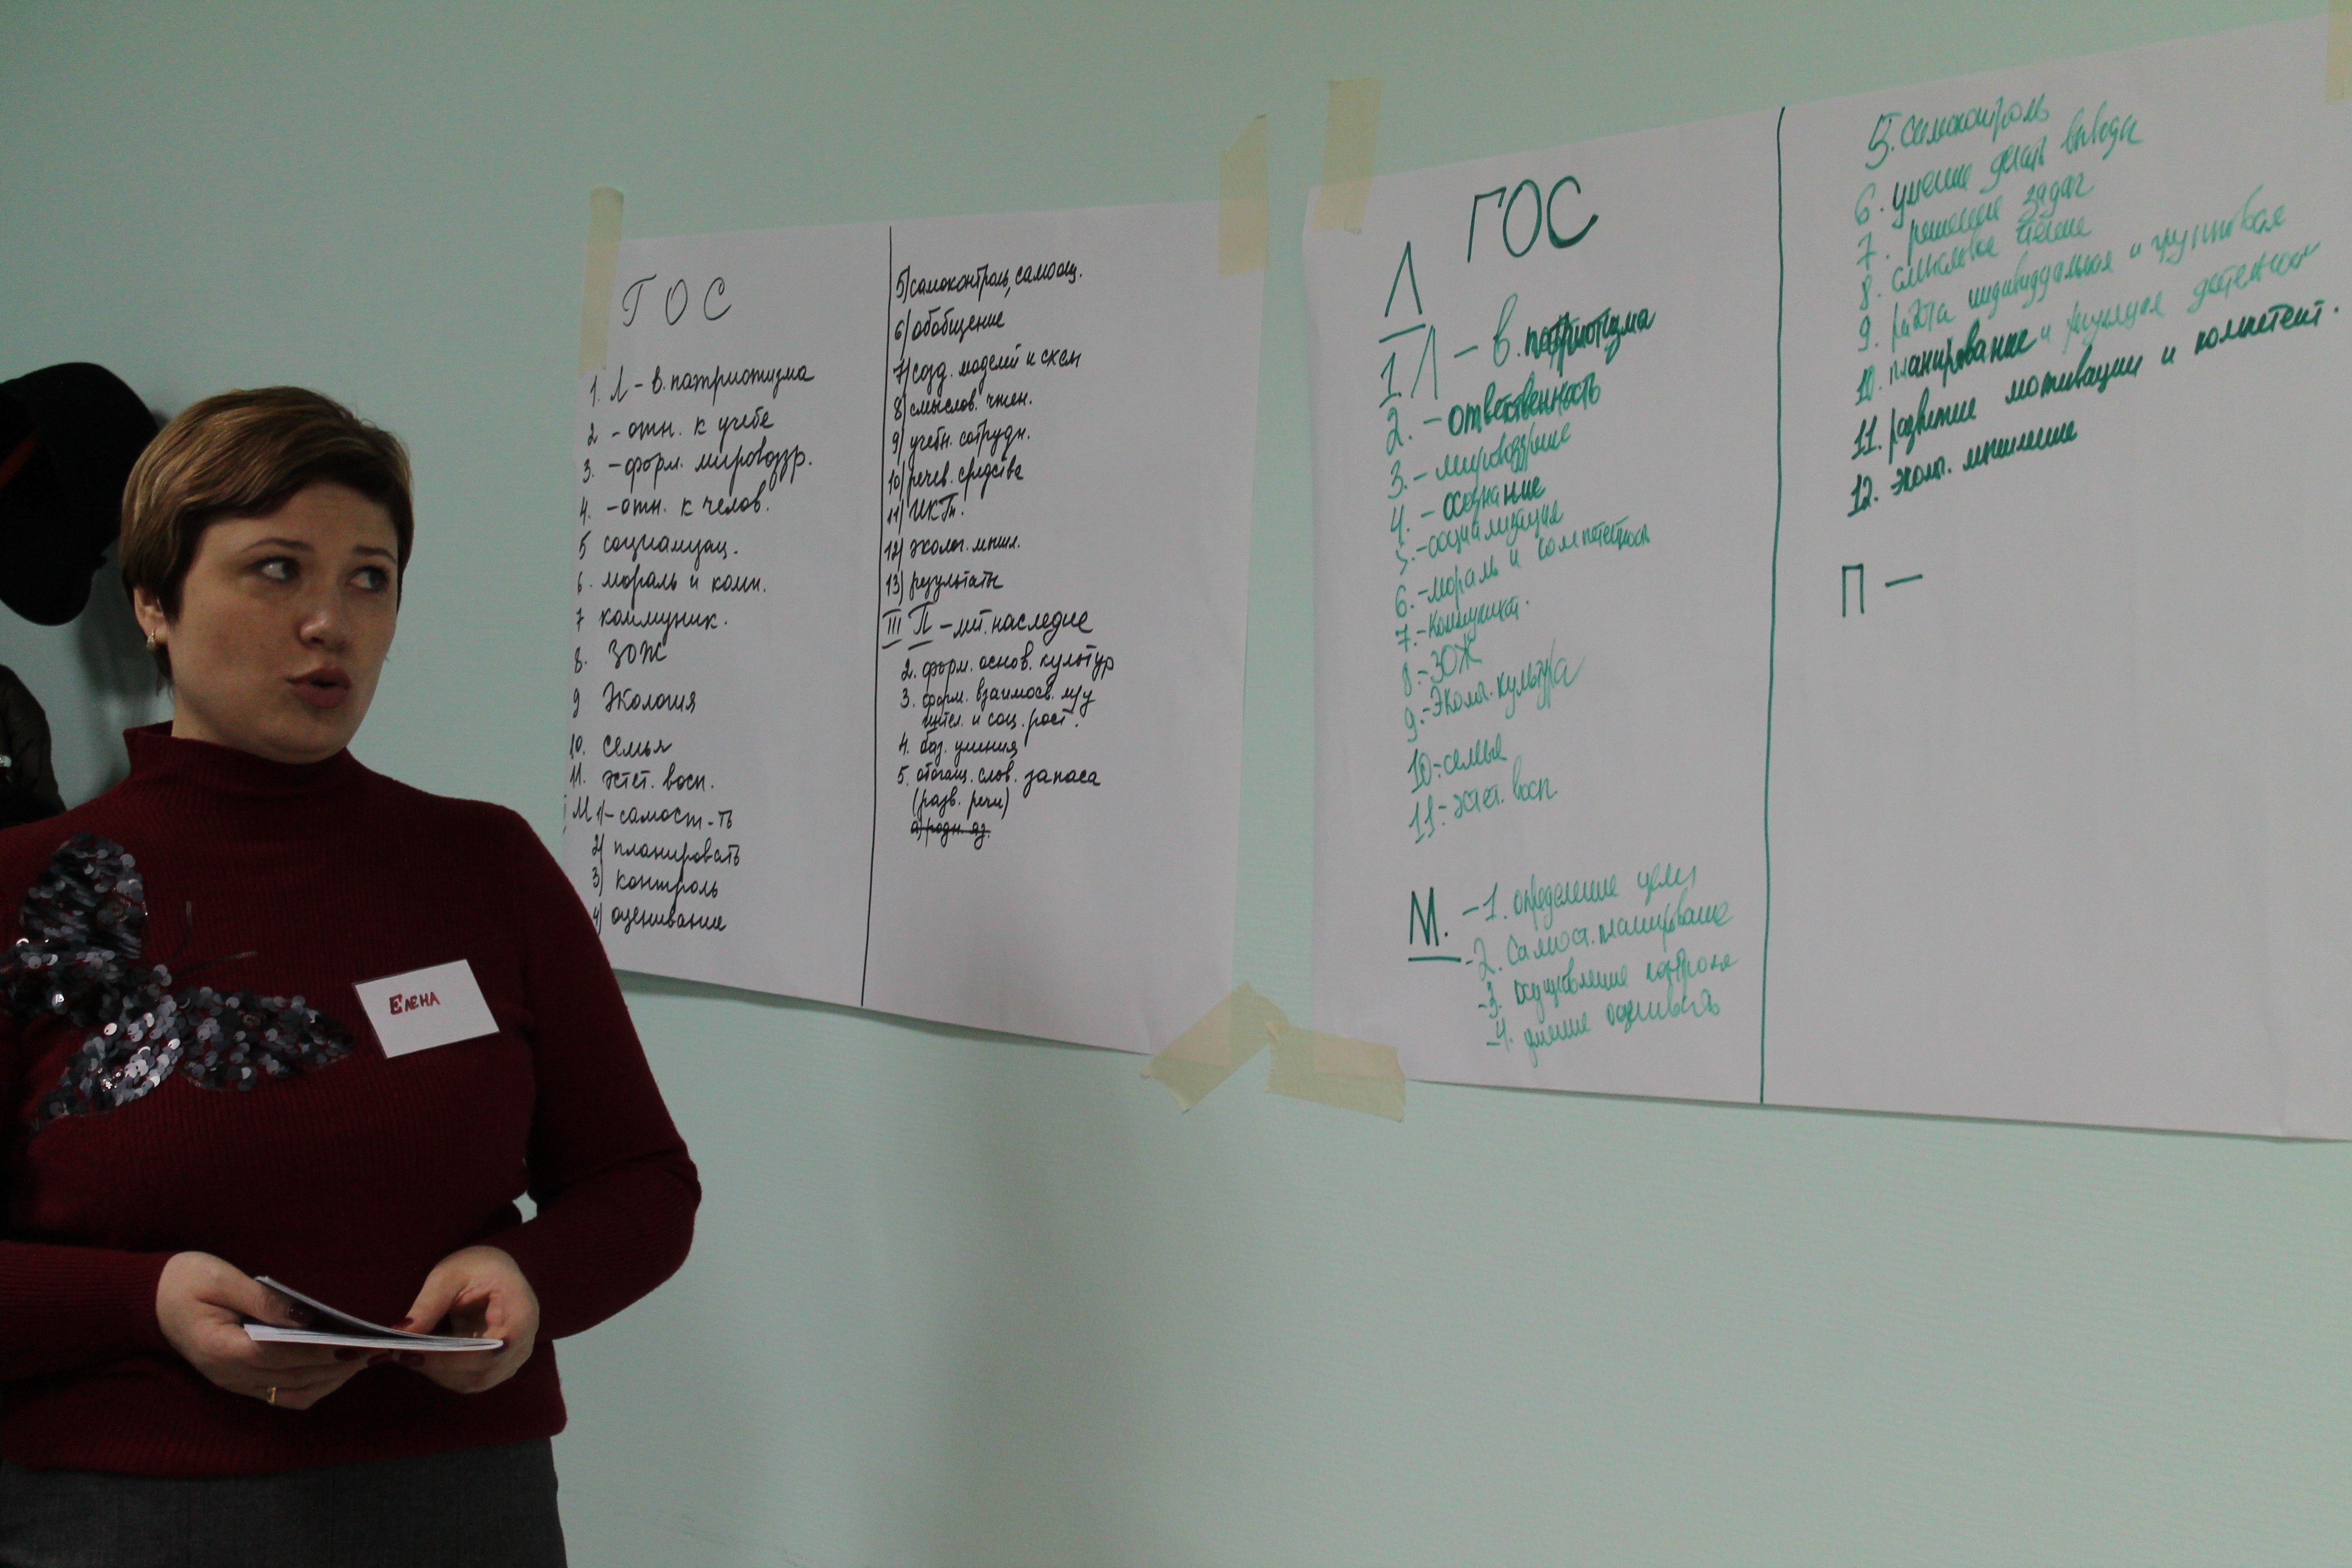 ГОС
1. Л - в. патриотизма
2 - отн. к учебе
3. - форм. мировоззр.
4. - отн. к челов.
5 социализац.
6. мораль и комп.
7 коммуник.
8. ЗОЖ
9 Экология
10. семья
11. эстет. восп.
М 1) - самост-ть
2) планировать
3) контроль
4) оценивание
5) самоконтроль, самооц.
6) обобщение
7) созд. моделей и схем
8) смыслов. чтен.
9) учебн. сотрудн.
10) речев. средства
11) ИКТ
12) эколог. мышл.
13) результаты
III П - лит. наследие
2. форм. основ. культур
3. форм. взаимосв. м/у
интел. и соц. рост.
4. баз. умения
5. обогащ. слов. запаса
(разв. речи)
а) родн. яз.
ГОС
Л
1. Л - в. патриотизма
2. - ответственность
3. - мировоззрение
4. - осознание
5. - социализация
6. - мораль и компетентность
7. - Коммуникат.
8. - ЗОЖ
9. - Эколог. культура
10 - семья
11 - эстет. восп.
М. - 1. определение цели
- 2. Самост. планирование
- 3. осуществление контроля
- 4. умение оценивать
5. самоконтроль
6. умение делать выводы
7. решение задач
8. смысловое чтение
9. работа индивидуальная и групповая
10. планирование и регуляция деятельности
11. развитие мотивации и компетент.
12. эколог. мышление
П -
Елена